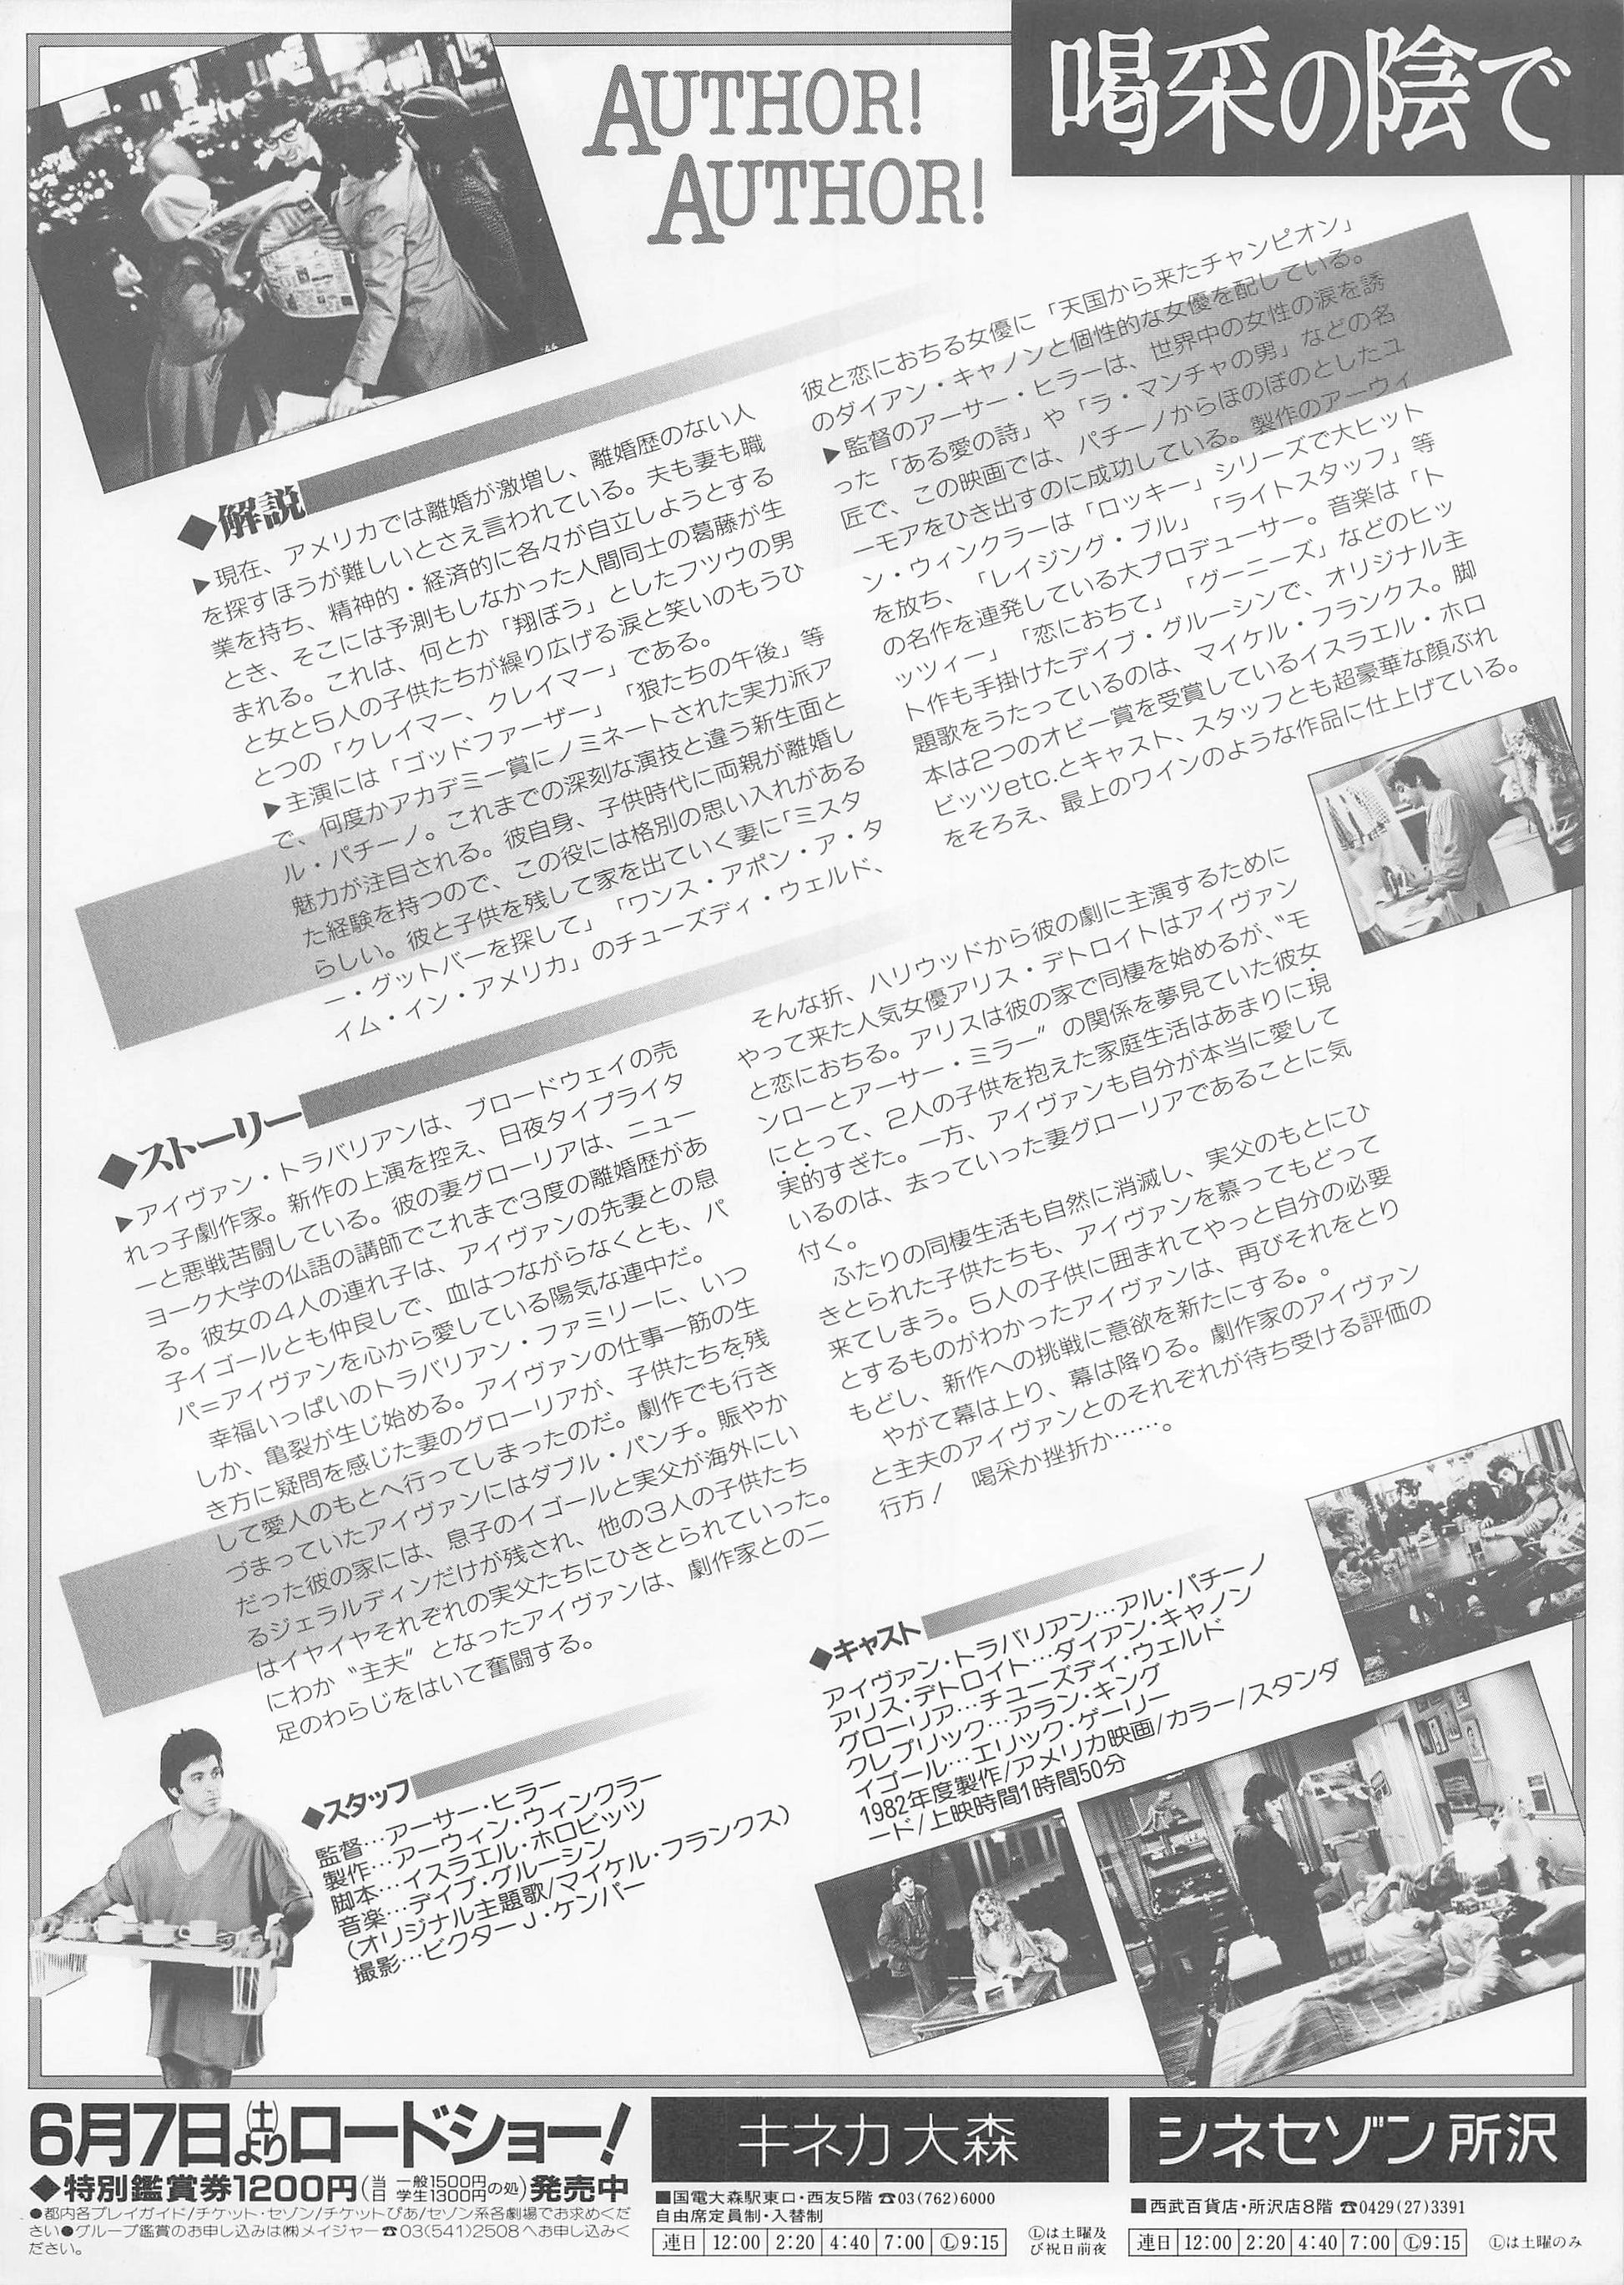 喝采の陰で
AUTHOR!
AUTHOR!
◆解説
▶現在、アメリカでは離婚が激増し、離婚歴のない人
を探すほうが難しいとさえ言われている。夫も妻も職
業を持ち、精神的・経済的に各々が自立しようとする
とき、そこには予測もしなかった人間同士の葛藤が生
まれる。これは、何とか「翔ぼう」としたフツウの男
と女と5人の子供たちが繰り広げる涙と笑いのもうひ
とつの「クレイマー、クレイマー」である。
▶主演には「ゴッドファーザー」「狼たちの午後」等
で、何度かアカデミー賞にノミネートされた実力派ア
ル・パチーノ。これまでの深刻な演技と違う新生面と
魅力が注目される。彼自身、子供時代に両親が離婚し
た経験を持つので、この役には格別の思い入れがある
らしい。彼と子供を残して家を出ていく妻に「ミスタ
ー・グットバーを探して」「ワンス・アポン・ア・タ
イム・イン・アメリカ」のチューズディ・ウェルド、
彼と恋におちる女優に「天国から来たチャンピオン」
のダイアン・キャノンと個性的な女優を配している。
▶監督のアーサー・ヒラーは、世界中の女性の涙を誘
った「ある愛の詩」や「ラ・マンチャの男」などの名
匠で、この映画では、パチーノからほのぼのとしたユ
ーモアをひき出すのに成功している。製作のアーウィ
ン・ウィンクラーは「ロッキー」シリーズで大ヒット
を放ち、「レイジング・ブル」「ライトスタッフ」等
の名作を連発している大プロデューサー。音楽は「ト
ッツィー」「恋におちて」「グーニーズ」などのヒッ
ト作も手掛けたデイブ・グルーシンで、オリジナル主
題歌をうたっているのは、マイケル・フランクス。脚
本は2つのオビー賞を受賞しているイスラエル・ホロ
ビッツetc.とキャスト、スタッフとも超豪華な顔ぶれ
をそろえ、最上のワインのような作品に仕上げている。
◆ストーリー
▶アイヴァン・トラバリアンは、ブロードウェイの売
れっ子劇作家。新作の上演を控え、日夜タイプライタ
ーと悪戦苦闘している。彼の妻グローリアは、ニュー
ヨーク大学の仏語の講師でこれまで3度の離婚歴があ
る。彼女の4人の連れ子は、アイヴァンの先妻との息
子イゴールとも仲良しで、血はつながらなくとも、パ
パ＝アイヴァンを心から愛している陽気な連中だ。
幸福いっぱいのトラバリアン・ファミリーに、いつ
しか、亀裂が生じ始める。アイヴァンの仕事一筋の生
き方に疑問を感じた妻のグローリアが、子供たちを残
して愛人のもとへ行ってしまったのだ。劇作でも行き
づまっていたアイヴァンにはダブル・パンチ。賑やか
だった彼の家には、息子のイゴールと実父が海外にい
るジェラルディンだけが残され、他の3人の子供たち
はイヤイヤそれぞれの実父たちにひきとられていった。
にわか〝主夫〟となったアイヴァンは、劇作家との二
足のわらじをはいて奮闘する。
そんな折、ハリウッドから彼の劇に主演するために
やって来た人気女優アリス・デトロイトはアイヴァン
と恋におちる。アリスは彼の家で同棲を始めるが、〝モ
ンローとアーサー・ミラー〟の関係を夢見ていた彼女
にとって、2人の子供を抱えた家庭生活はあまりに現
実的すぎた。一方、アイヴァンも自分が本当に愛して
いるのは、去っていった妻グローリアであることに気
付く。
ふたりの同棲生活も自然に消滅し、実父のもとにひ
きとられた子供たちも、アイヴァンを慕ってもどって
来てしまう。5人の子供に囲まれてやっと自分の必要
とするものがわかったアイヴァンは、再びそれをとり
もどし、新作への挑戦に意欲を新たにする。。
やがて幕は上り、幕は降りる。劇作家のアイヴァン
と主夫のアイヴァンとのそれぞれが待ち受ける評価の
行方！　喝采か挫折か……。
◆スタッフ
監督…アーサー・ヒラー
製作…アーウィン・ウィンクラー
脚本…イスラエル・ホロビッツ
音楽…デイブ・グルーシン
（オリジナル主題歌/マイケル・フランクス）
撮影…ビクターJ・ケンパー
◆キャスト
アイヴァン・トラバリアン…アル・パチーノ
アリス・デトロイト…ダイアン・キャノン
グローリア…チューズディ・ウェルド
クレプリック…アラン・キング
イゴール…エリック・ゲーリー
1982年度製作/アメリカ映画/カラー/スタンダ
ード/上映時間1時間50分
6月7日(土)よりロードショー！
◆特別鑑賞券1200円（当日 一般1500円 学生1300円の処）発売中
●都内各プレイガイド/チケット・セゾン/チケットぴあ/セゾン系各劇場でお求めくだ
さい●グループ鑑賞のお申し込みは㈱メイジャー☎03(541)2508へお申し込みく
ださい。
キネカ大森
■国電大森駅東口・西友5階 ☎03(762)6000
自由席定員制・入替制
連日 12:00 2:20 4:40 7:00 Ⓛ9:15
Ⓛは土曜及
び祝日前夜
シネセゾン所沢
■西武百貨店・所沢店8階 ☎0429(27)3391
連日 12:00 2:20 4:40 7:00 Ⓛ9:15
Ⓛは土曜のみ